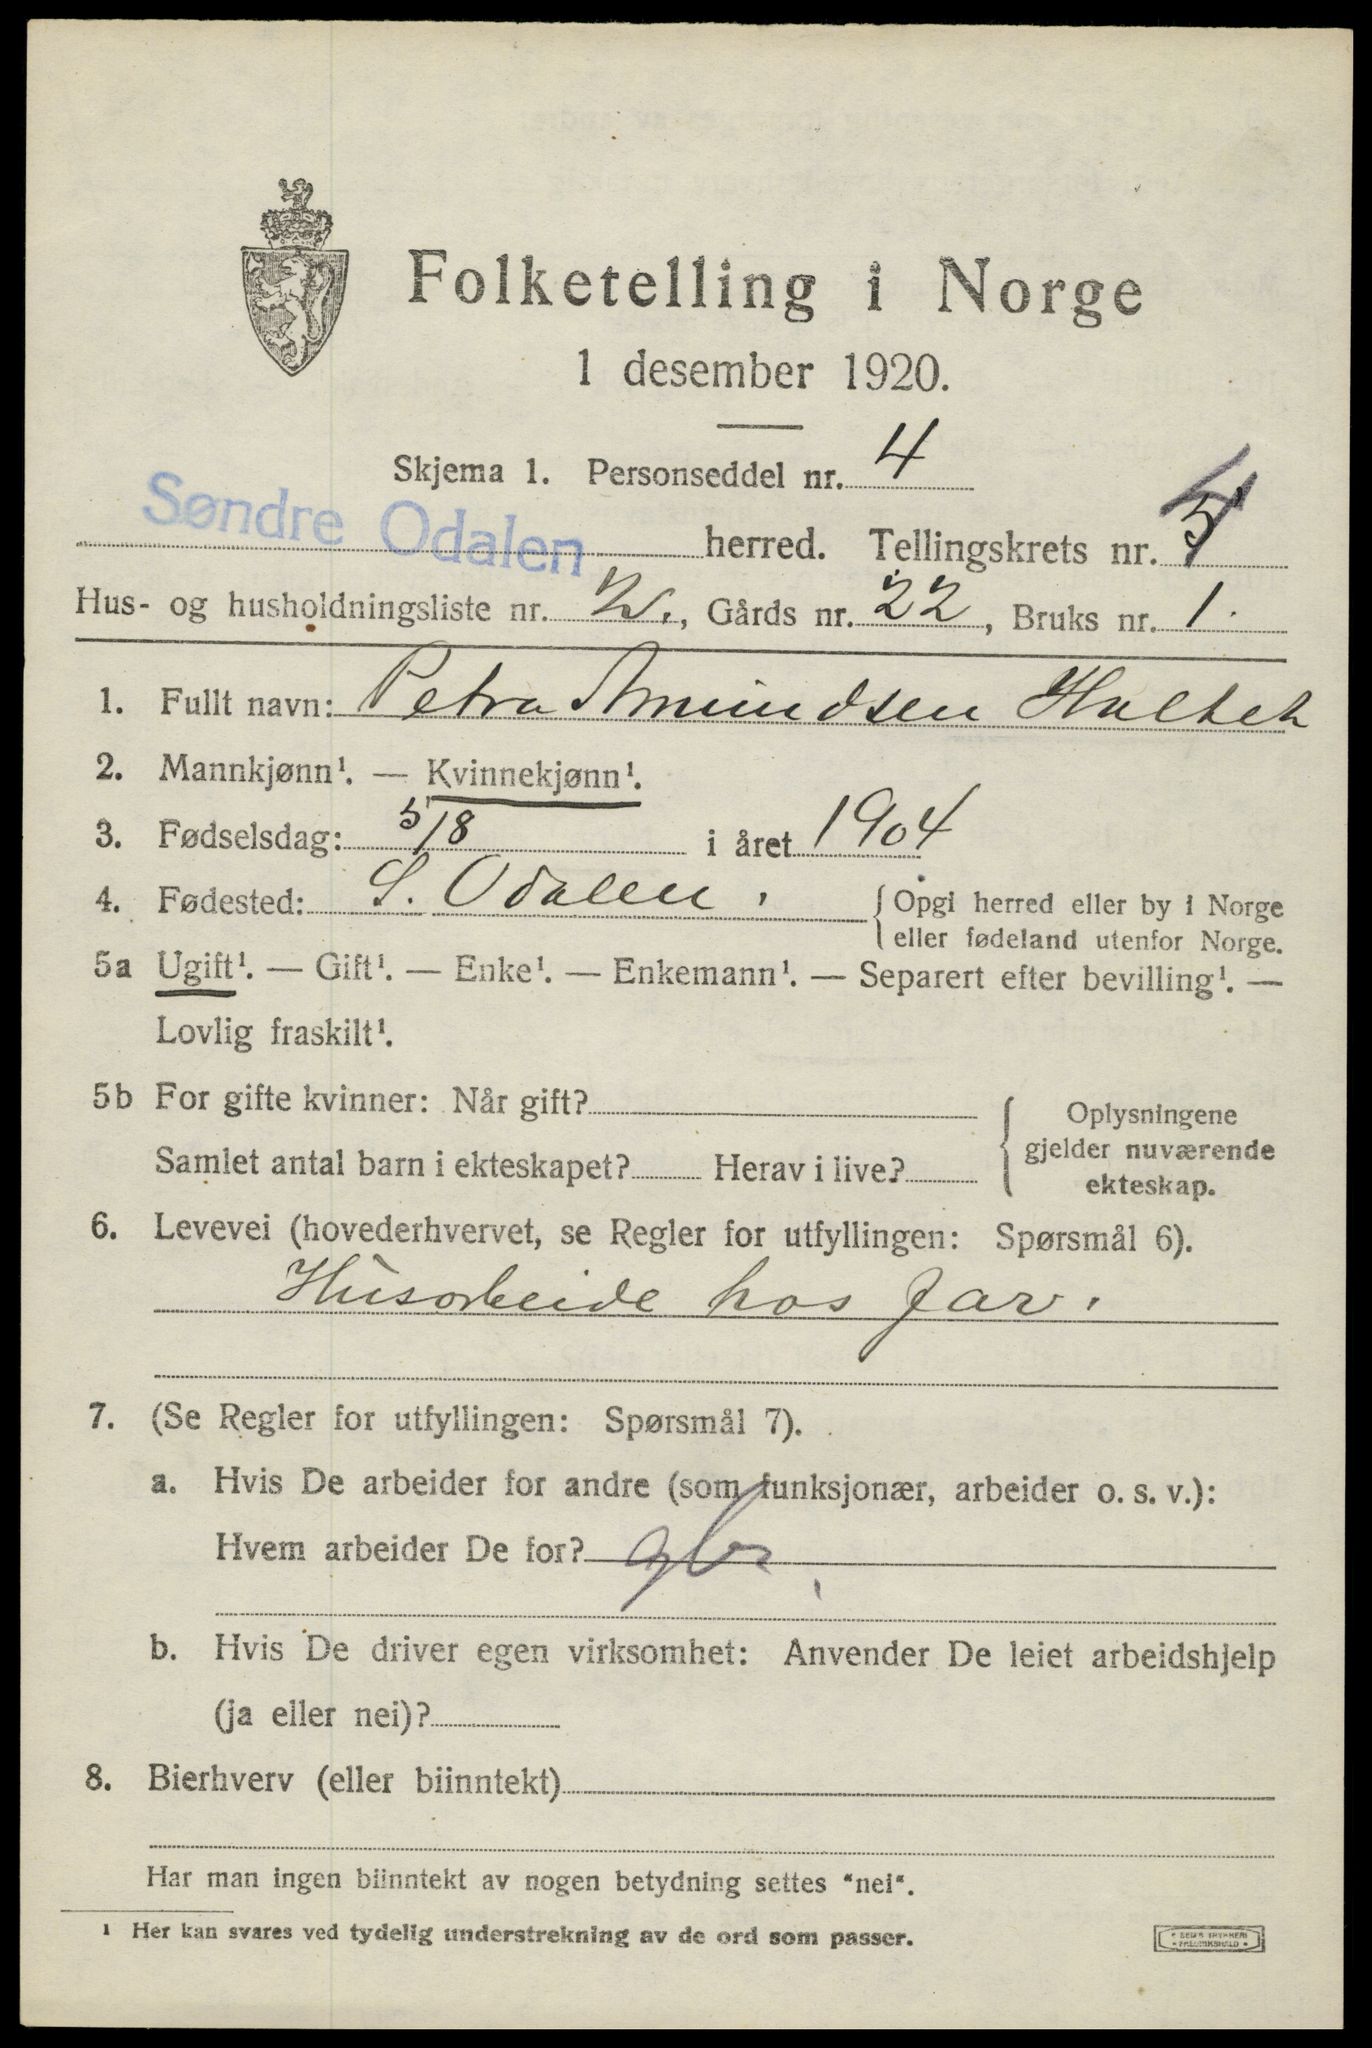 Folketelling i Norge
1 desember 1920.
Skjema 1. Personseddel nr. 4
Søndre Odalen herred. Tellingskrets nr. 4
Hus- og husholdningsliste nr. 2., Gårds nr. 22, Bruks nr. 1.
1. Fullt navn: Petra Amundsen
2. Mannkjønn¹. — Kvinnekjønn¹.
3. Fødselsdag: 5/8 i året 1904
4. Fødested: S. Odalen. {Opgi herred eller by i Norge
eller fødeland utenfor Norge.
5a Ugift¹. — Gift¹. — Enke¹. — Enkemann¹. — Separert efter bevilling¹. —
Lovlig fraskilt¹.
5b For gifte kvinner: Når gift? { Oplysningene
gjelder nuværende
Samlet antal barn i ekteskapet? Herav i live? ekteskap.
6. Levevei (hovederhvervet, se Regler for utfyllingen: Spørsmål 6).
Husarbeide hos far.
7. (Se Regler for utfyllingen: Spørsmål 7).
a. Hvis De arbeider for andre (som funksjonær, arbeider o. s. v.):
Hvem arbeider De for?
b. Hvis De driver egen virksomhet: Anvender De leiet arbeidshjelp
(ja eller nei)?
8. Bierhverv (eller biinntekt)
Har man ingen biinntekt av nogen betydning settes "nei".
¹ Her kan svares ved tydelig understrekning av de ord som passer.